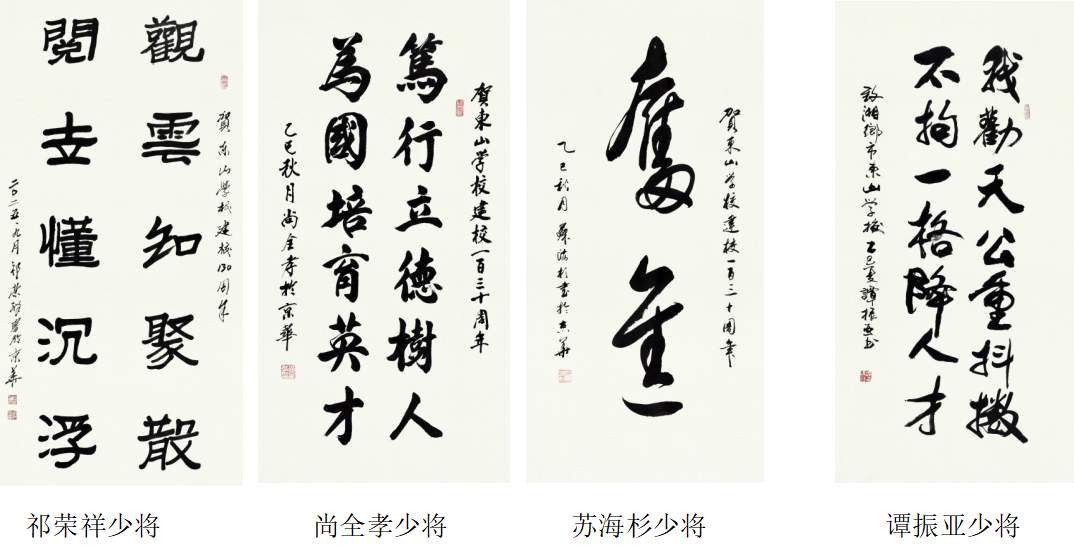 賀东山學校建校130周年
觀雲知聚散
閱世懂沉浮
二〇二五、九月祁荣祥書於京華
賀東山学校建校一百三十周年
篤行立德樹人
為國培育英才
乙巳秋月尚全孝於京華
賀東山学校建校一百三十周年
奮進
乙巳秋月蘇海杉書於京華
我勸天公重抖擻
不拘一格降人才
致湘鄉市東山学校乙巳夏譚振亚书
祁荣祥少将
尚全孝少将
苏海杉少将
谭振亚少将